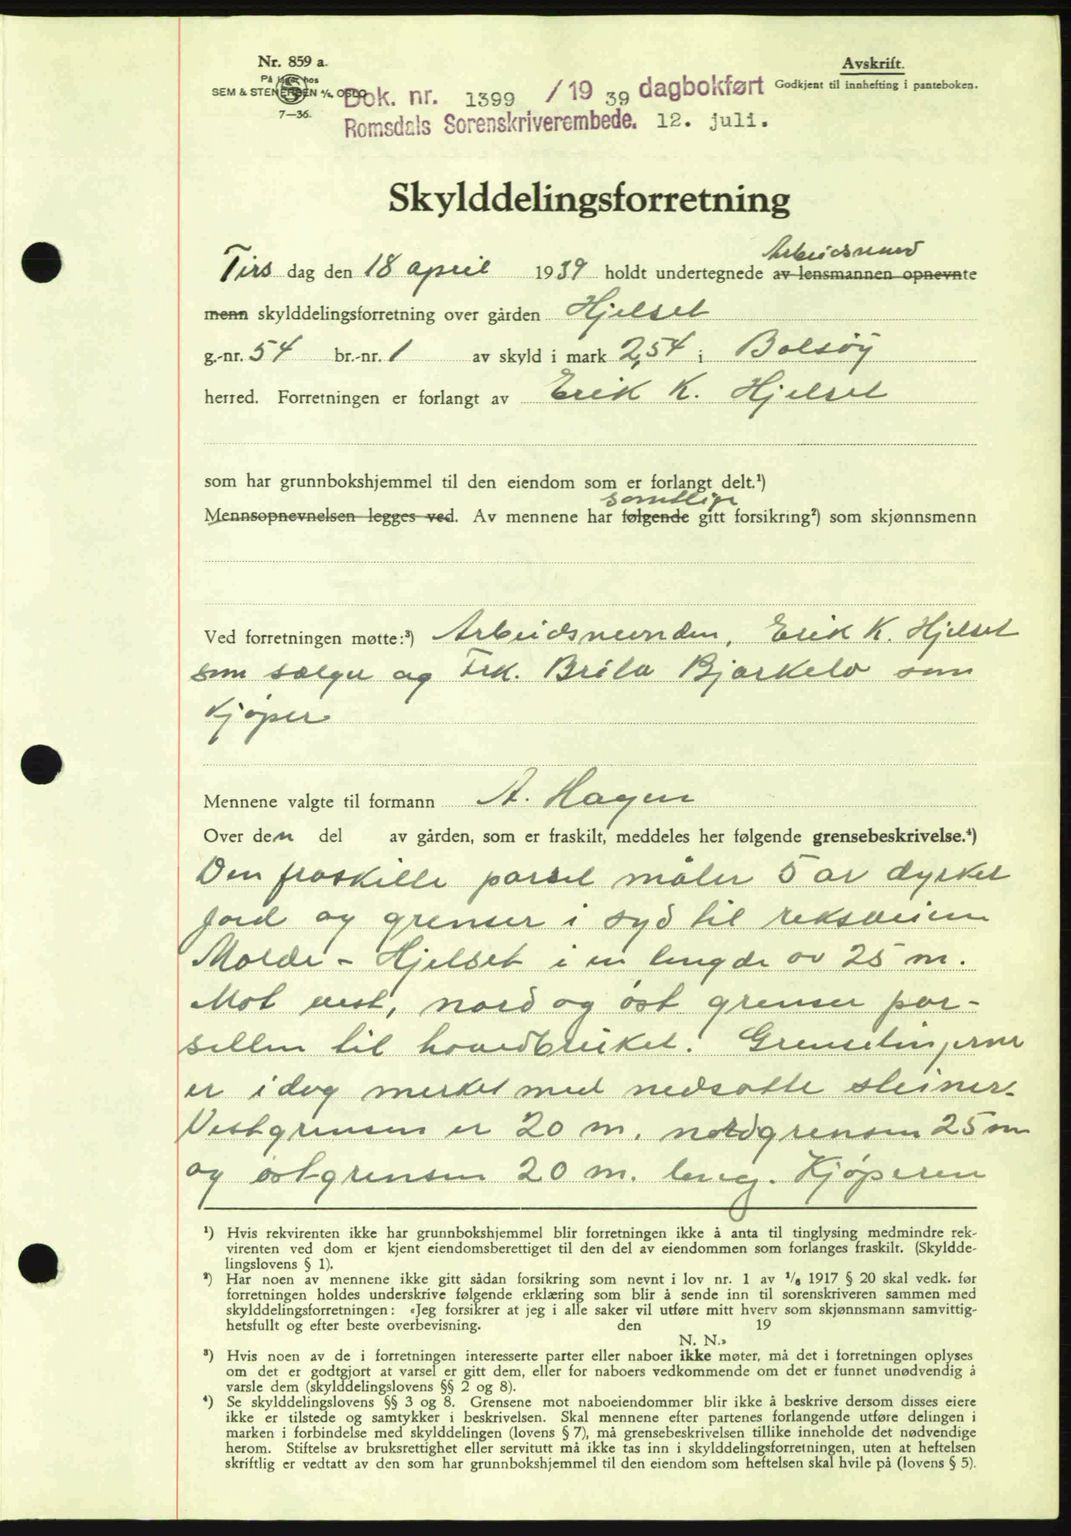 Nr. 859 a.
På lager hos
SEM & STENERSEN A/S, OSLO
7—36.
Avskrift.
Godkjent til innhefting i panteboken.
Dok. nr. 1399 /19 39 dagbokført
Romsdals Sorenskriverembede. 12. juli.
Skylddelingsforretning
Arbeidsnevnd
Tirs dag den 18 april 1939 holdt undertegnede av lensmannen opnevnte
menn skylddelingsforretning over gården Hjelset
g.-nr. 54 br.-nr. 1 av skyld i mark 2,54 i Bolsøy
herred. Forretningen er forlangt av Erik K. Hjelset
som har grunnbokshjemmel til den eiendom som er forlangt delt.¹)
samtlige
Mennsopnevnelsen legges ved. Av mennene har følgende gitt forsikring²) som skjønnsmenn
Ved forretningen møtte:³) Arbeidsnevnden, Erik K. Hjelset
som sælger og Frk. Brita Bjørkelo som
kjøper
Mennene valgte til formann A. Hagen
Over den del av gården, som er fraskilt, meddeles her følgende grensebeskrivelse.⁴)
Den fraskilte parsel måler 5 ar dyrket
jord og grenser i syd til riksveien
Molde - Hjelset i en lengde av 25 m.
Mot vest, nord og øst grenser par-
sellen til hovedbruket. Grenselinjerne
er idag merket med nedsatte steiner.
Vestgrensen er 20 m, nordgrensen 25 m
og østgrensen 20 m. lang. Kjøperen
¹) Hvis rekvirenten ikke har grunnbokshjemmel blir forretningen ikke å anta til tinglysing medmindre rek-
virenten ved dom er kjent eiendomsberettiget til den del av eiendommen som forlanges fraskilt. (Skyldde-
lingslovens § 1).
²) Har noen av mennene ikke gitt sådan forsikring som nevnt i lov nr. 1 av ¹/₆ 1917 § 20 skal vedk. før
forretningen holdes underskrive følgende erklæring som blir å sende inn til sorenskriveren sammen med
skylddelingsforretningen: «Jeg forsikrer at jeg i alle saker vil utføre mitt hverv som skjønnsmann samvittig-
hetsfullt og efter beste overbevisning. den 19
N. N.»
³) Hvis noen av de i forretningen interesserte parter eller naboer ikke møter, må det i forretningen oplyses
om det er godtgjort at varsel er gitt dem, eller for naboers vedkommende om det er funnet unødvendig å
varsle dem (skylddelingslovens §§ 2 og 8).
⁴) Se skylddelingslovens §§ 3 og 8. Grensene mot naboeiendommer blir ikke å beskrive dersom disses eiere
ikke er tilstede og samtykker i beskrivelsen. Skal mennene efter partenes forlangende utføre delingen i
marken i forbindelse med skylddelingen (lovens § 7), må grensebeskrivelsen tillike inneholde det nødvendige
herom. Stiftelse av bruksrettighet eller servitutt må ikke tas inn i skylddelingsforretningen, uten at heftelsen
skriftlig er vedtatt av den som har grunnbokshjemmel til den eiendom som heftelsen skal hvile på (lovens § 5).